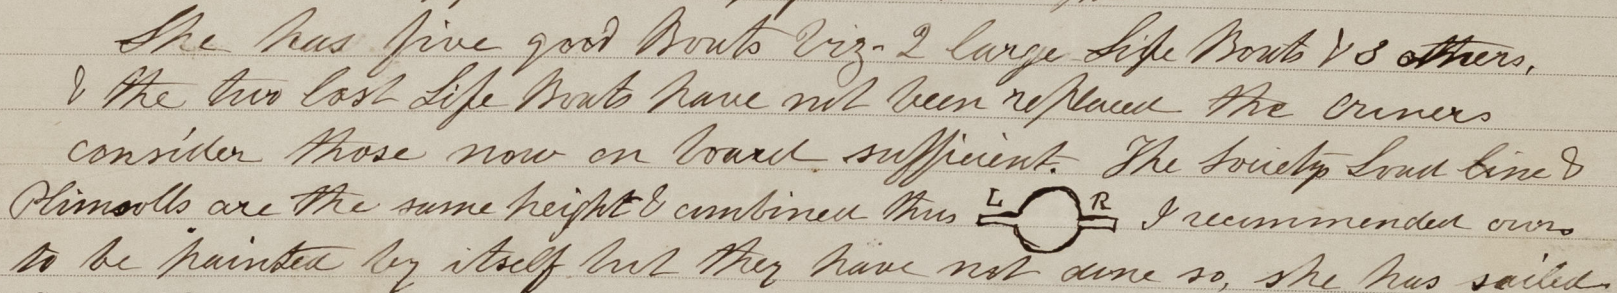 She has five good Boats Viz- 2 large Life Boats & 3 others,
& the two lost Life Boats have not been replaced the owners
consider those now on board sufficient. The Societys Load line &
Plimsolls are the same height & combined thus L R I recommended ours
to be painted by itself but they have not done so, she has sailed